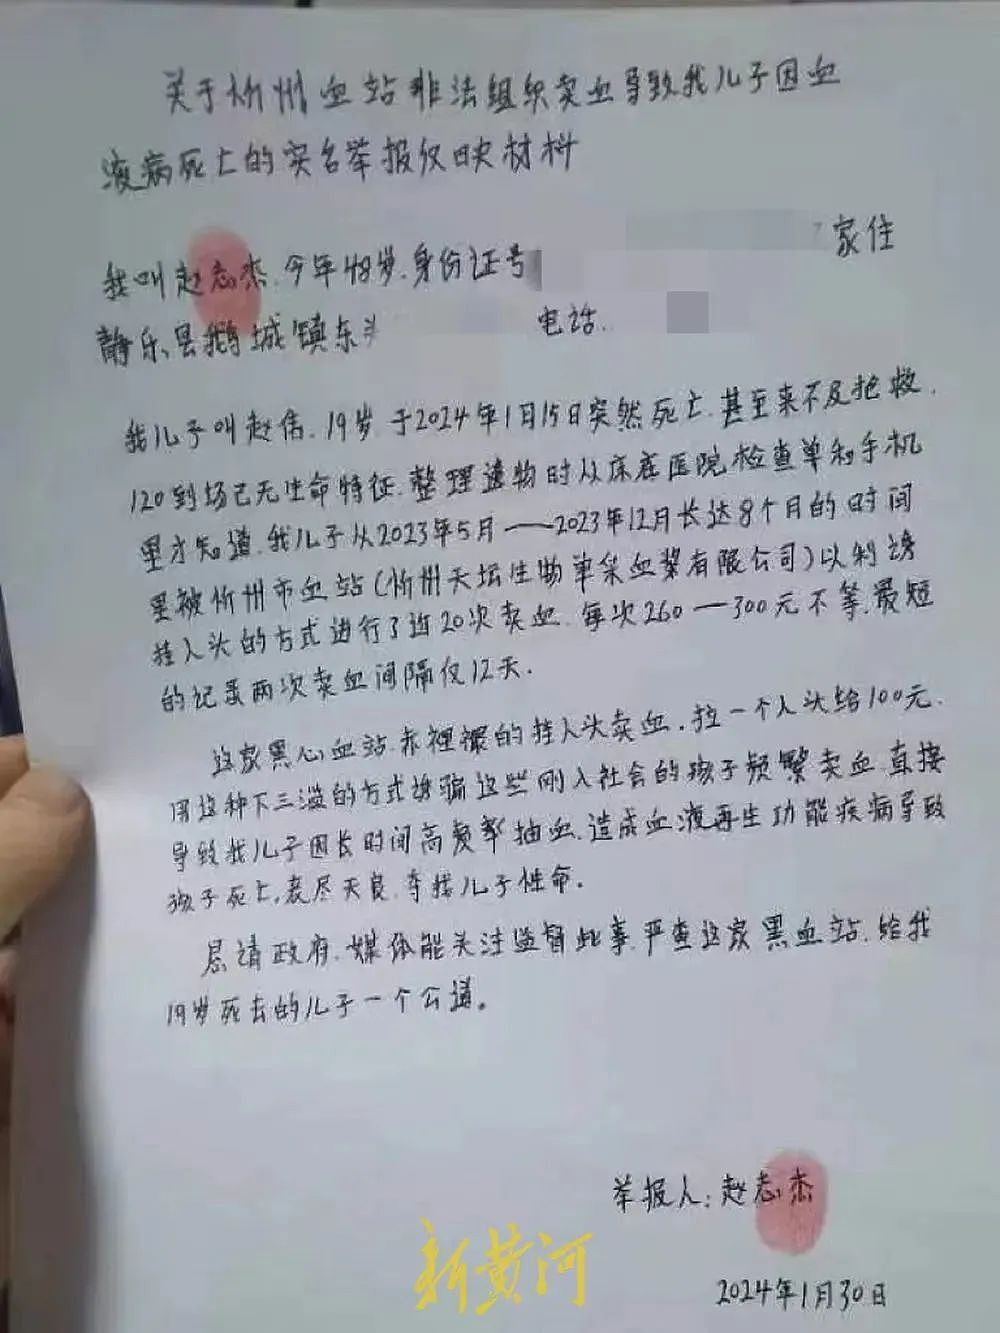 关于忻州血站非法组织卖血导致我儿子因血
液病死亡的实名举报反映材料
我叫赵志杰.今年48岁.身份证号 家住
静乐县鹅城镇东 电话.
我儿子叫赵伟.19岁.于2024年1月15日突然死亡.甚至来不及抢救.
120到场已无生命特征.整理遗物时从床底医院检查单和手机
里才知道.我儿子从2023年5月——2023年12月长达8个月的时间
里被忻州市血站(忻州天坛生物单采血浆有限公司)以利诱
挂人头的方式进行了近20次卖血.每次260—300元不等.最短
的记录两次卖血间隔仅12天.
这家黑心血站.赤裡裸的挂人头卖血.拉一个人头给100元.
用这种下三滥的方式诱骗这些刚入社会的孩子频繁卖血.直接
导致我儿子因长时间高频率抽血.造成血液再生功能疾病导致
孩子死亡.丧尽天良.夺我儿子性命.
恳请政府.媒体能关注监督此事.严查这家黑血站.给我
19岁死去的儿子一个公道。
举报人:赵志杰
新黄河
2024年1月30日